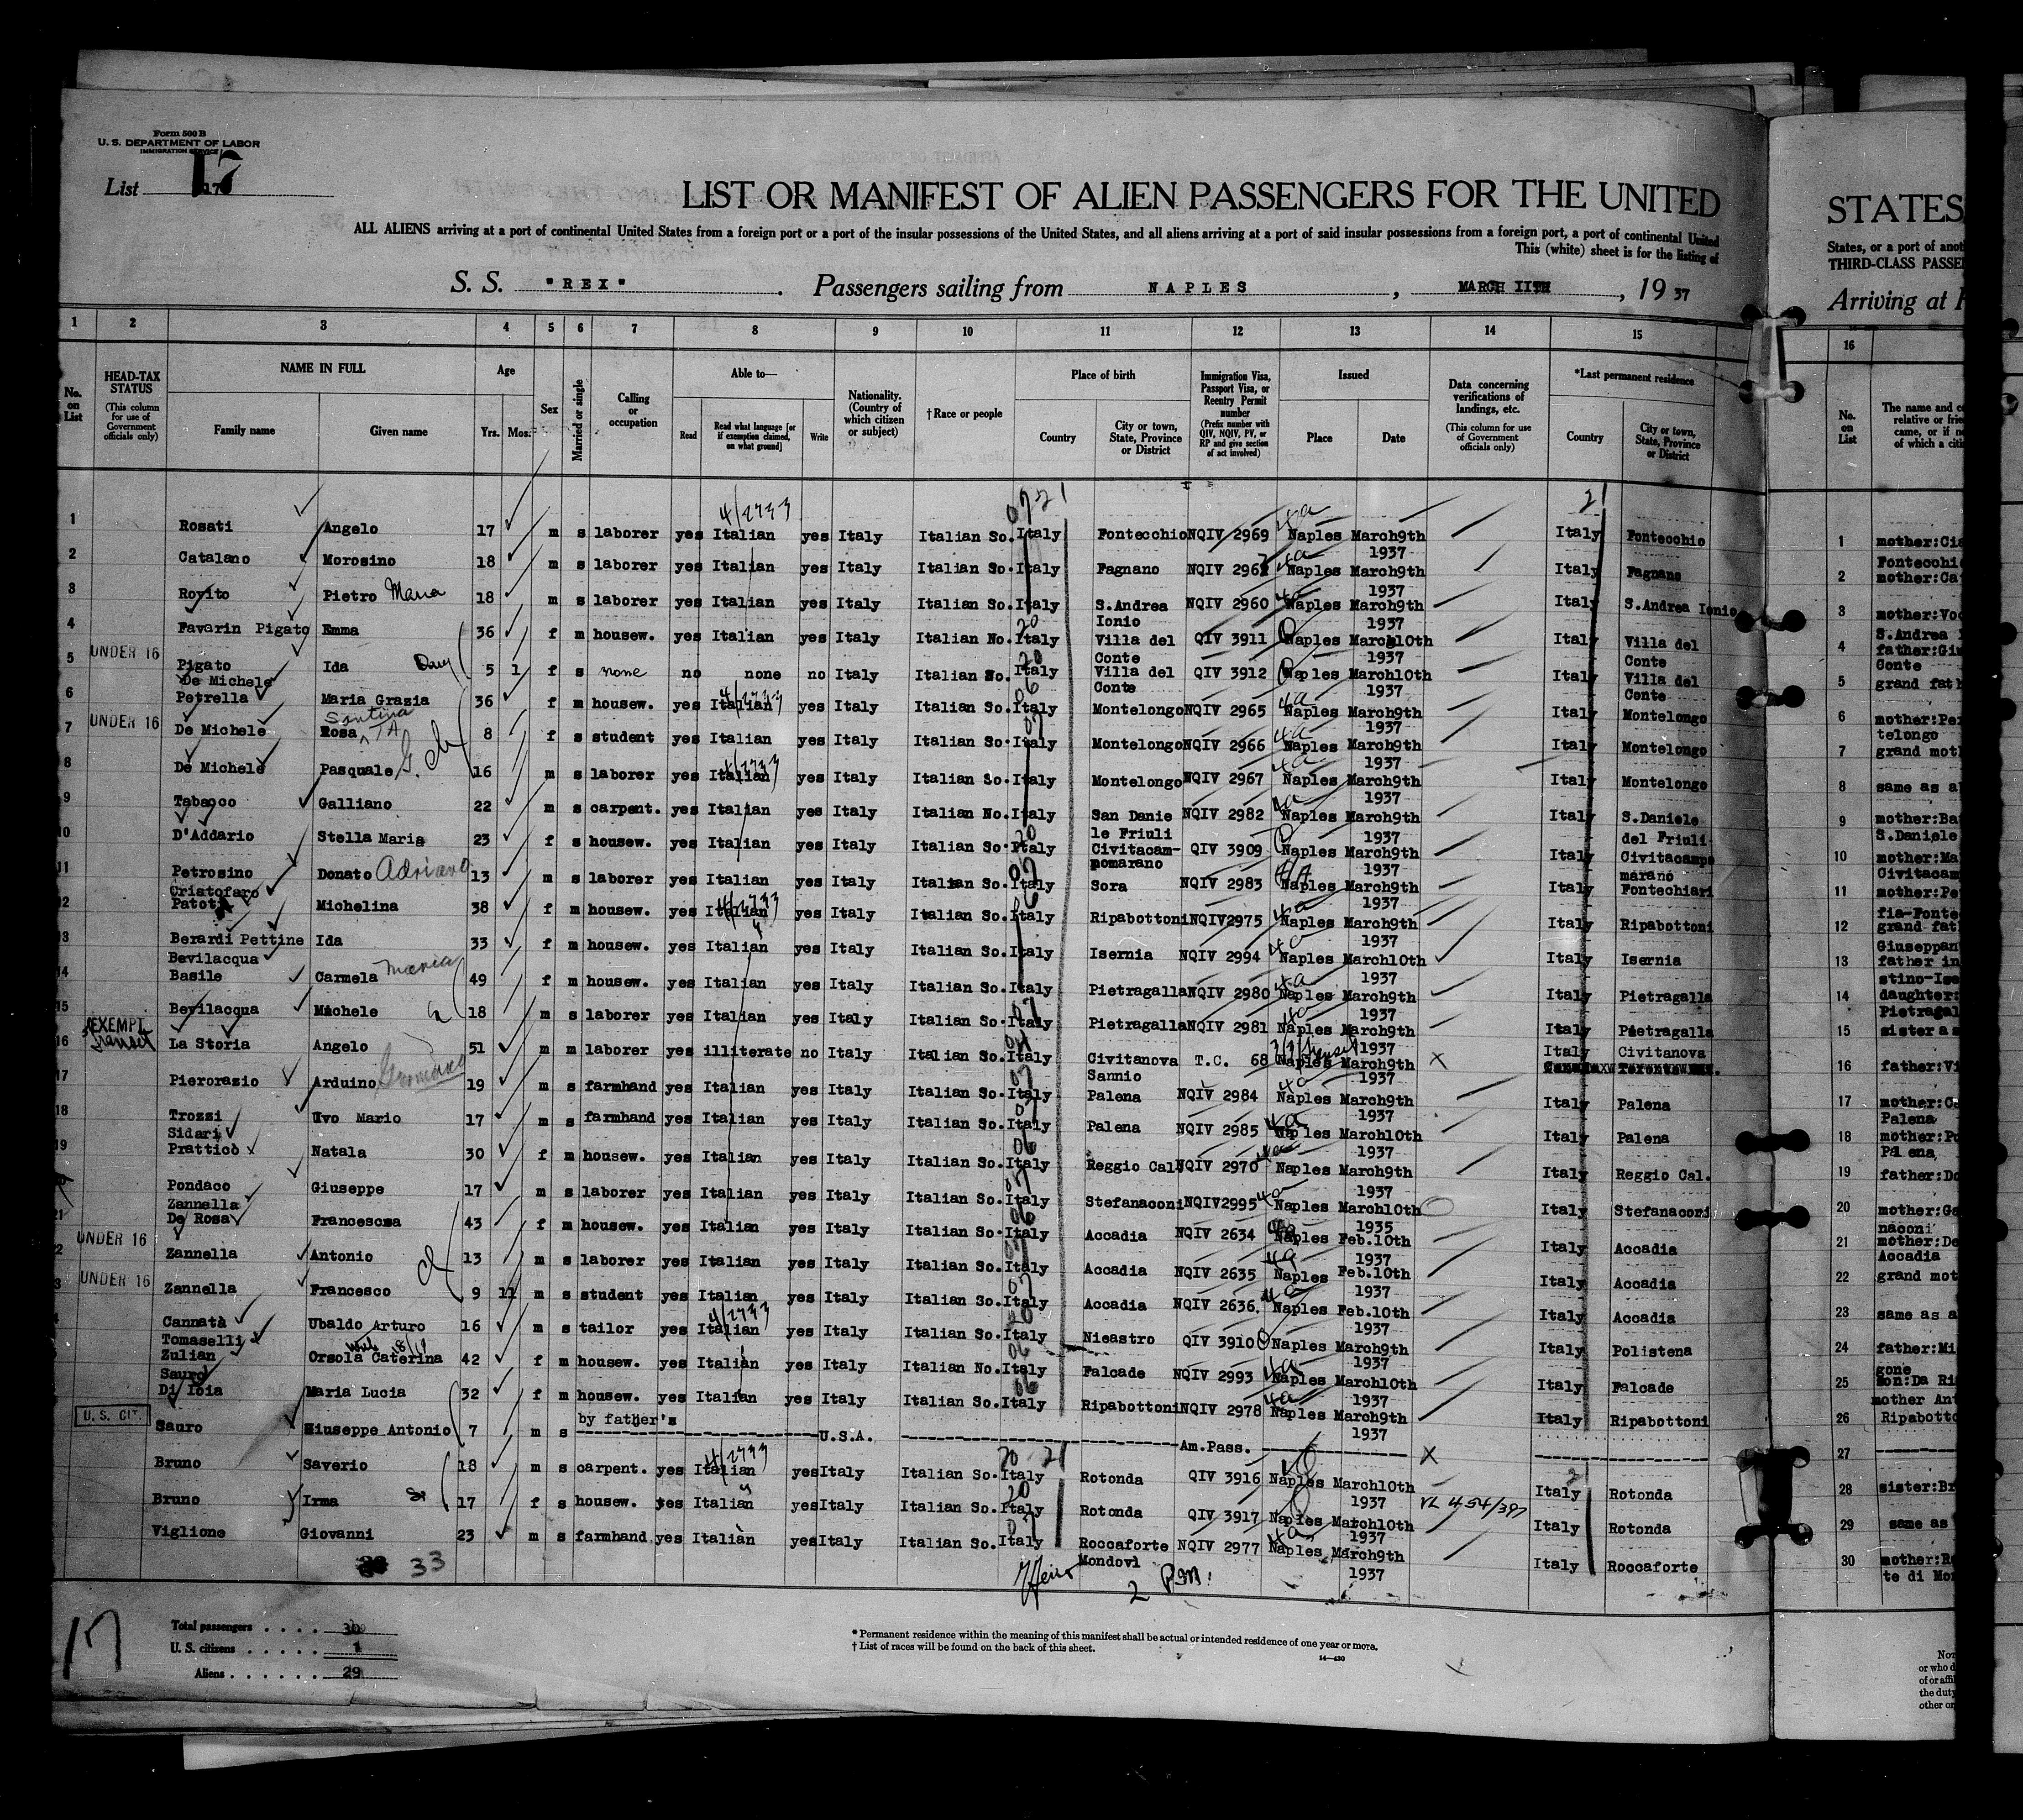 Form 500 B
U. S. DEPARTMENT OF LABOR
IMMIGRATION SERVICE
List 17
LIST OR MANIFEST OF ALIEN PASSENGERS FOR THE UNITED
STATES
ALL ALIENS arriving at a port of continental United States from a foreign port or a port of the insular possessions of the United States, and all aliens arriving at a port of said insular possessions from a foreign port, a port of continental United
States, or a port of anot
This (white) sheet is for the listing of
THIRD-CLASS PASSE
S. S. "REX". Passengers sailing from NAPLES, MARCH IITH, 19 37
Arriving at
1 2 3 4 5 6 7 8 9 10 11 12 13 14 15 16
No. on List
HEAD-TAX STATUS (This column for use of Government officials only)
NAME IN FULL Family name Given name
Age Yrs. Mos.
Sex
Married or single
Calling or occupation
Able to— Read Read what language [or if exemption claimed, on what ground] Write
Nationality. (Country of which citizen or subject)
†Race or people
Place of birth Country City or town, State, Province or District
Immigration Visa, Passport Visa, or Reentry Permit number (Prefix number with QIV, NQIV, PV, or RP and give section of act involved)
Issued Place Date
Data concerning verifications of landings, etc. (This column for use of Government officials only)
*Last permanent residence Country City or town, State, Province or District
No. on List
The name and
relative or frie
came, or if n
of which a citi
1 Rosati Angelo 17 m s laborer yes Italian yes Italy Italian So. Italy Fontecchio NQIV 2969 Naples March9th 1937 Italy Fontecchio 1 mother:Cia Fontecchi
2 Catalano Morosino 18 m s laborer yes Italian yes Italy Italian So. Italy Fagnano NQIV 2962 Naples March9th 1937 Italy Fagnano 2 mother:Ca
3 Rovito Pietro Maria 18 m s laborer yes Italian yes Italy Italian So. Italy S.Andrea Ionio NQIV 2960 Naples March9th 1937 Italy S.Andrea Ionio 3 mother:Voc S.Andrea
4 Favarin Pigato Emma 36 f m housew. yes Italian yes Italy Italian No. Italy Villa del Conte QIV 3911 Naples March10th 1937 Italy Villa del Conte 4 father:Giu Conte
5 UNDER 16 Pigato Ida 5 1 f s none no none no Italy Italian No. Italy Villa del Conte QIV 3912 Naples March10th 1937 Italy Villa del Conte 5 grand fath
6 De Michele Petrella Maria Grazia 36 f m housew. yes Italian yes Italy Italian So. Italy Montelongo NQIV 2965 Naples March9th 1937 Italy Montelongo 6 mother:Pe telongo
7 UNDER 16 De Michele Rosa Santina 8 f s student yes Italian yes Italy Italian So. Italy Montelongo NQIV 2966 Naples March9th 1937 Italy Montelongo 7 grand mot
8 De Michele Pasquale G. 16 m s laborer yes Italian yes Italy Italian So. Italy Montelongo NQIV 2967 Naples March9th 1937 Italy Montelongo 8 same as a
9 Tabacco Galliano 22 m s carpent. yes Italian yes Italy Italian No. Italy San Danie le Friuli NQIV 2982 Naples March9th 1937 Italy S.Daniele del Friuli 9 mother:Ba S.Daniele
10 D'Addario Stella Maria 23 f s housew. yes Italian yes Italy Italian So. Italy Civitacam- pomarano QIV 3909 Naples March9th 1937 Italy Civitacampo marano 10 mother:Ma Civitacam
11 Petrosino Donato Adriano 13 m s laborer yes Italian yes Italy Italian So. Italy Sora NQIV 2983 Naples March9th 1937 Italy Fontechiari 11 mother:Pe fia-Fonte
12 Cristofaro Michelina 38 f m housew. yes Italian yes Italy Italian So. Italy Ripabottoni NQIV2975 Naples March9th 1937 Italy Ripabottoni 12 grand fat Giuseppan
13 Berardi Pettine Ida 33 f m housew. yes Italian yes Italy Italian So. Italy Isernia NQIV 2994 Naples March10th 1937 Italy Isernia 13 father in stino-Ise
14 Bevilacqua Basile Carmela Maria 49 f m housew. yes Italian yes Italy Italian So. Italy Pietragalla NQIV 2980 Naples March9th 1937 Italy Pietragalla 14 daughter: Pietragal
15 Bevilacqua Michele 18 m s laborer yes Italian yes Italy Italian So. Italy Pietragalla NQIV 2981 Naples March9th 1937 Italy Pietragalla 15 sister as
16 EXEMPT transit La Storia Angelo 51 m m laborer yes illiterate no Italy Italian So. Italy Civitanova Sannio T.C. 68 Naples March9th 1937 X Italy Civitanova 16 father:Vi
17 Pierorazio Arduino 19 m s farmhand yes Italian yes Italy Italian So. Italy Palena NQIV 2984 Naples March9th 1937 Italy Palena 17 mother:C Palena
18 Trozzi Uvo Mario 17 m s farmhand yes Italian yes Italy Italian So. Italy Palena NQIV 2985 Naples March10th 1937 Italy Palena 18 mother:Po Palena,
19 Sidari Prattico Natala 30 f m housew. yes Italian yes Italy Italian So. Italy Reggio Cal. NQIV 2970 Naples March9th 1937 Italy Reggio Cal. 19 father:Do
20 Pondaco Giuseppe 17 m s laborer yes Italian yes Italy Italian So. Italy Stefanaconi NQIV2995 Naples March10th 1935 Italy Stefanaconi 20 mother:Ga naconi
21 Zannella De Rosa Francesca 43 f m housew. yes Italian yes Italy Italian So. Italy Accadia NQIV 2634 Naples Feb.10th 1937 Italy Accadia 21 mother:De Accadia
22 UNDER 16 Zannella Antonio 13 m s laborer yes Italian yes Italy Italian So. Italy Accadia NQIV 2635 Naples Feb.10th 1937 Italy Accadia 22 grand mot
23 UNDER 16 Zannella Francesco 9 11 m s student yes Italian yes Italy Italian So. Italy Accadia NQIV 2636. Naples Feb.10th 1937 Italy Accadia 23 same as a
Cannatà Ubaldo Arturo 16 m s tailor yes Italian yes Italy Italian So. Italy Nicastro QIV 3910 Naples March9th 1937 Italy Polistena 24 father:Mi gone
Tomaselli Zulian Orsola Caterina 42 f m housew. yes Italian yes Italy Italian No. Italy Falcade NQIV 2993 Naples March10th 1937 Italy Falcade 25 son:Da Ri
Sauro Di Ioia Maria Lucia 32 f m housew. yes Italian yes Italy Italian So. Italy Ripabottoni NQIV 2978 Naples March9th 1937 Italy Ripabottoni mother Ant 26 Ripabotto
U. S. CIT. Sauro Giuseppe Antonio 7 m s by father's U.S.A. Am.Pass. X 27
Bruno Saverio 18 m s carpent. yes Italian yes Italy Italian So. Italy Rotonda QIV 3916 Naples March10th 1937 Italy Rotonda 28 sister:Br
Bruno Irma 17 f s housew. yes Italian yes Italy Italian So. Italy Rotonda QIV 3917 Naples March10th 1937 VL 454/397 Italy Rotonda 29 same as
Viglione Giovanni 23 m s farmhand yes Italian yes Italy Italian So. Italy Roccaforte Mondovì NQIV 2977 Naples March9th 1937 Italy Roccaforte 30 mother:Ro te di Mon
33
17
Total passengers . . . . 30
U. S. citizens . . . . . 1
Aliens . . . . . . 29
* Permanent residence within the meaning of this manifest shall be actual or intended residence of one year or more.
† List of races will be found on the back of this sheet.
14—430